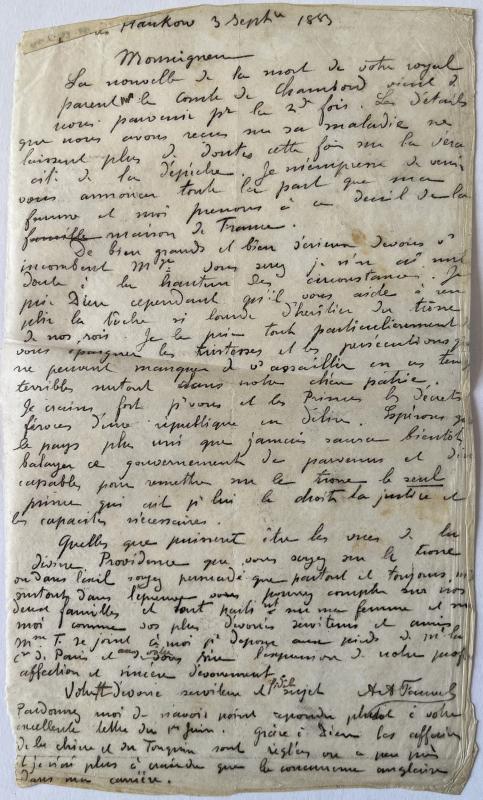 Hankow 3 Septbre 1883
Monseigneur
La nouvelle de la mort de votre royal
parent Mgr le comte de Chambord vient de
nous parvenir pr la 2de fois. Les détails
que nous avons reçus sur sa maladie ne
laissent plus de doutes cette fois sur la véra
cité de la dépêche. Je m'empresse de venir
vous annoncer toute la part que ma
femme et moi prenons à ce deuil de la
famille maison de France.
De bien grands et bien sérieux devoirs vs
incombent Mgr vous serez je n'en ai nul
doute à la hauteur des circonstances. Je
prie Dieu cependant qu'il vous aide à rem
plir la tâche si lourde d'héritier du trône
de nos rois. Je le prie tout particulièrement
vous épargner les tristesses et les persécutions qui
ne peuvent manquer de vs assaillir en ces temps
terribles surtout dans notre chère patrie.
Je crains fort pr vous et les Princes les décrets
féroces d'une république en délire. Espérons que
le pays plus uni que jamais saura bientôt
balayer ce gouvernement de parvenus et d'in
capables pour remettre sur le trône le seul
prince qui ait pr lui le droit, la justice et
les capacités nécessaires.
Quelles que puissent être les vues de la
divine Providence que vous soyez sur le trône
ou dans l'exil soyez persuadé que partout et toujours,
surtout dans l'épreuve vous pourrez compter sur nos
deux familles et tout particulièrement sur ma femme et sur
moi comme vos plus dévoués serviteurs et amis.
Mme F. se joint à moi pr déposer aux pieds de Mme la
Ctesse de Paris et aux vôtres l'expression de notre profonde
affection et sincère dévouement
Votre dévoué serviteur et fidèle sujet
Pardonnez moi de n'avoir point répondu plutôt à votre
excellente lettre du 1er Juin. grâce à Dieu les affaires
de la chine et du Tonquin sont réglées ou à peu près
et je n'ai plus à craindre que la concurrence anglaise
dans ma carrière.